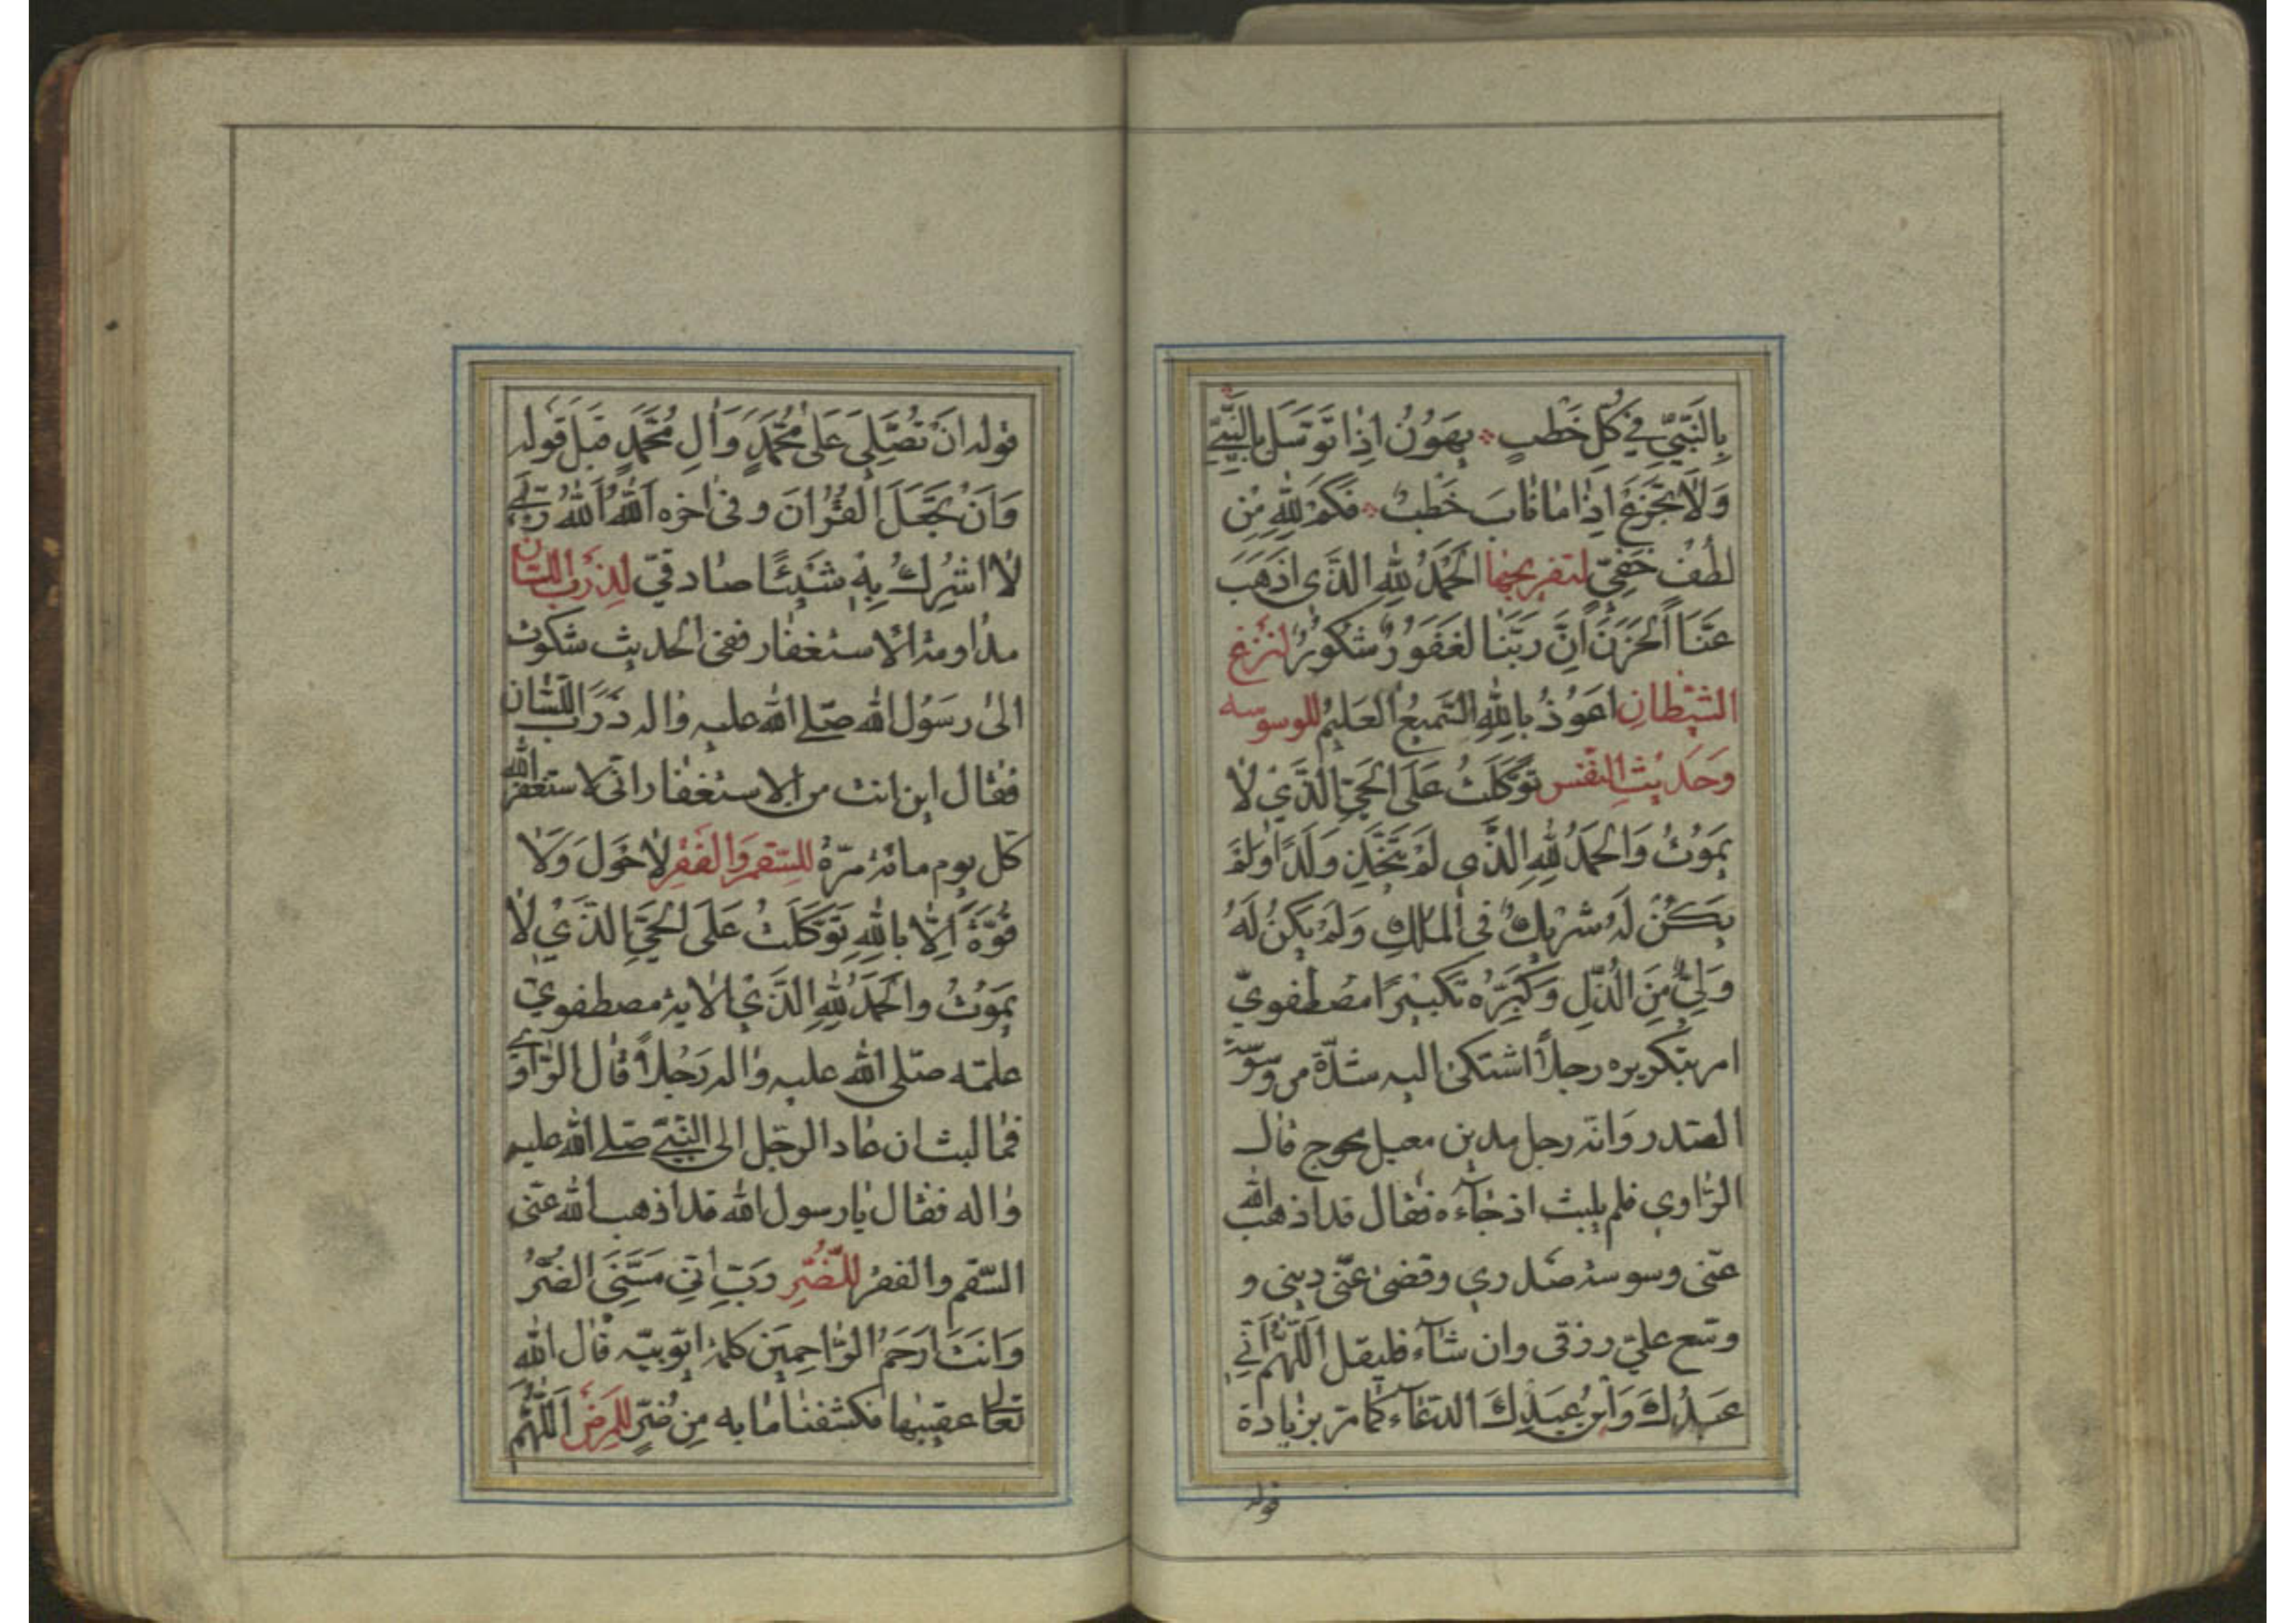 بِالنَّبِيِّ فِي كُلِّ خَطْبٍ يَهُونُ إِذَا تَوَسَّلَ بِالنَّبِيِّ
وَلَا تَجْزَعْ إِذَا مَا نَابَ خَطْبٌ فَكَمْ لِلّٰهِ مِنْ
لُطْفٍ خَفِيٍّ لتفريجها اَلْحَمْدُ لِلّٰهِ الَّذِي اَذْهَبَ
عَنَّا الْحَزَنَ اِنَّ رَبَّنَا لَغَفُورٌ شَكُورٌ لنزغ
الشيطان اَعُوذُ بِاللّٰهِ السَّمِيعِ الْعَلِيمِ للوسوسه
وَحَديثِ النَّفْس تَوَكَّلْتُ عَلَى الْحَيِّ الَّذِي لَا
يَمُوتُ وَالْحَمْدُ لِلّٰهِ الَّذِي لَمْ يَتَّخِذْ وَلَدًا وَلَمْ
يَكُنْ لَهُ شَرِيكٌ فِي الْمُلْكِ وَلَمْ يَكُنْ لَهُ
وَلِيٌّ مِنَ الذُّلِّ وَكَبِّرْهُ تَكْبِيرًا مصطفويّ
امر بتكريره رجلاً اشتكى اليه شدّة من وسوسة
الصدر وانه رجل مدين معيل محوج قال
الرّاوي فلم يلبث اذ جاءه فقال قد اذهب الله
عنّى وسوسة صدري وقضى عنّى ديني و
وسّع عليّ رزقى وان شاء فليقل اَللّٰهُمَّ اِنِّي
عَبْدُكَ وَابْنُ عَبْدِكَ الدعاء كما مرّ بزيادة
قوله
قوله اَنْ تُصَلِّيَ عَلَى مُحَمَّدٍ وَآلِ مُحَمَّدٍ قبل قوله
وَاَنْ تَجْعَلَ الْقُرْآنَ وفى اخره اَللّٰهُ اَللّٰهُ رَبِّي
لَا اُشْرِكُ بِهِ شَيْئًا صادقيّ لِذرب اللسان
مداومة الاستغفار ففى الحديث شكوت
الى رسول الله صلى الله عليه واله ذرب اللسان
فقال اين انت من الاستغفار انّى لاستغفر الله
كل يوم مائة مرّة للسقم والفقر لَا حَوْلَ وَلَا
قُوَّةَ اِلَّا بِاللّٰهِ تَوَكَّلْتُ عَلَى الْحَيِّ الَّذِي لَا
يَمُوتُ وَالْحَمْدُ لِلّٰهِ الَّذِي الاية مصطفويّ
علّمه صلى الله عليه واله رجلاً قال الرّاوي
فما لبث ان عاد الرجل الى النبيّ صلى الله عليه
واله فقال يا رسول الله قد اذهب الله عنّى
السّقم والفقر للضّرّ رَبِّ اِنِّي مَسَّنِيَ الضُّرُّ
وَاَنْتَ اَرْحَمُ الرَّاحِمِينَ كلمة ايّوبيّه قال الله
تعالى عقيبها فكشفنا ما به مِن ضُرٍّ للمرض اَللّٰهُمَّ